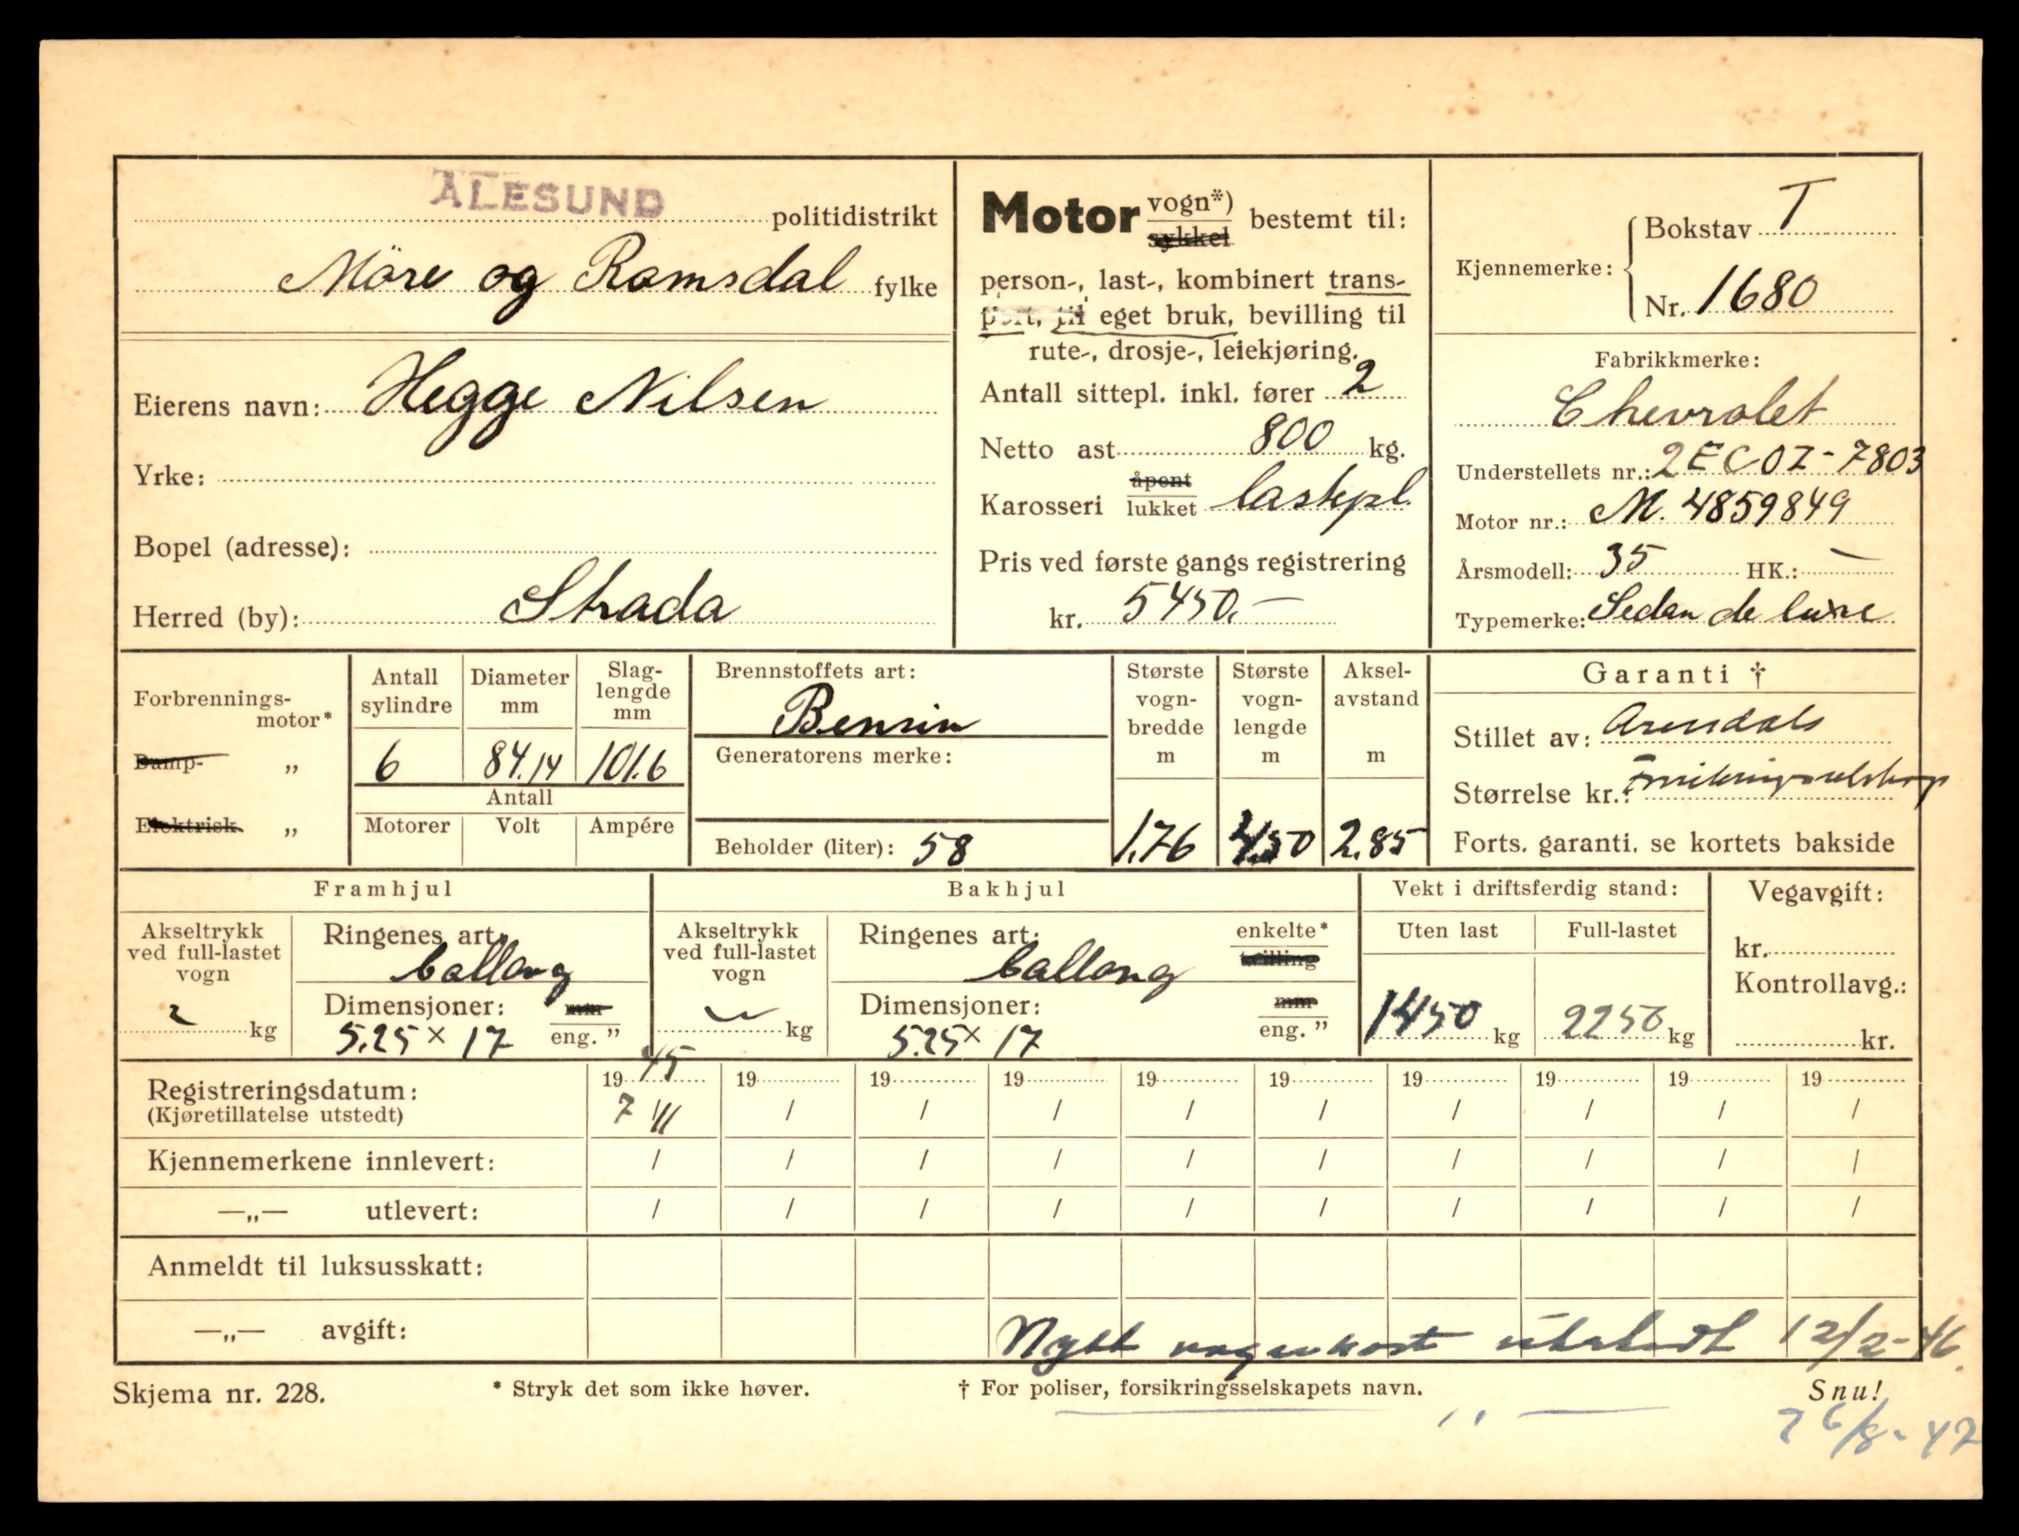 ÅLESUND politidistrikt
Möre og Romsdal fylke
Eierens navn: Hegge Nilsen
Yrke:
Bopel (adresse):
Herred (by): Strada
Motor vogn*) sykkel bestemt til:
person-, last-, kombinert trans-
port, til eget bruk, bevilling til
rute-, drosje-, leiekjøring.
Antall sittepl. inkl. fører 2
Netto ast 800 kg.
Karosseri åpent lukket lastepl.
Pris ved første gangs registrering
kr. 5450.—
Kjennemerke: Bokstav T
Nr. 1680
Fabrikkmerke:
Chevrolet
Understellets nr.: 2EC07-7803
Motor nr.: M. 4859849
Årsmodell: 35 HK.: —
Typemerke: Sedan de luxe
Forbrennings-
motor*
Damp- „
Elektrisk „
Antall sylindre 6
Diameter mm 84.14
Slag-
lengde
mm 101.6
Antall
Motorer Volt Ampére
Brennstoffets art:
Bensin
Generatorens merke:
Beholder (liter): 58
Største
vogn-
bredde
m
1.76
Største
vogn-
lengde
m
4.50
Aksel-
avstand
m
2.85
Garanti †
Stillet av: Arendals
Størrelse kr.: Forsikringsselskap
Forts. garanti. se kortets bakside
Framhjul
Akseltrykk
ved full-lastet
vogn
kg
Ringenes art: ballong
Dimensjoner: mm
5.25 x 17 eng. ”
Bakhjul
Akseltrykk
ved full-lastet
vogn
kg
Ringenes art: ballong
enkelte*
tvilling
Dimensjoner: mm
5.25 x 17 eng. ”
Vekt i driftsferdig stand:
Uten last
1450 kg
Full-lastet
2250 kg
Vegavgift:
kr.
Kontrollavg.:
kr.
Registreringsdatum: 19 45 19 19 19 19 19 19 19 19 19
(Kjøretillatelse utstedt) 7/III / / / / / / / / /
Kjennemerkene innlevert: / / / / / / / / / /
—„— utlevert: / / / / / / / / / /
Anmeldt til luksusskatt:
—„— avgift:
Nytt vognkort utstedt 12/2-46.
Skjema nr. 228.
* Stryk det som ikke høver.
† For poliser, forsikringsselskapets navn.
Snu!
" — 26/8-47